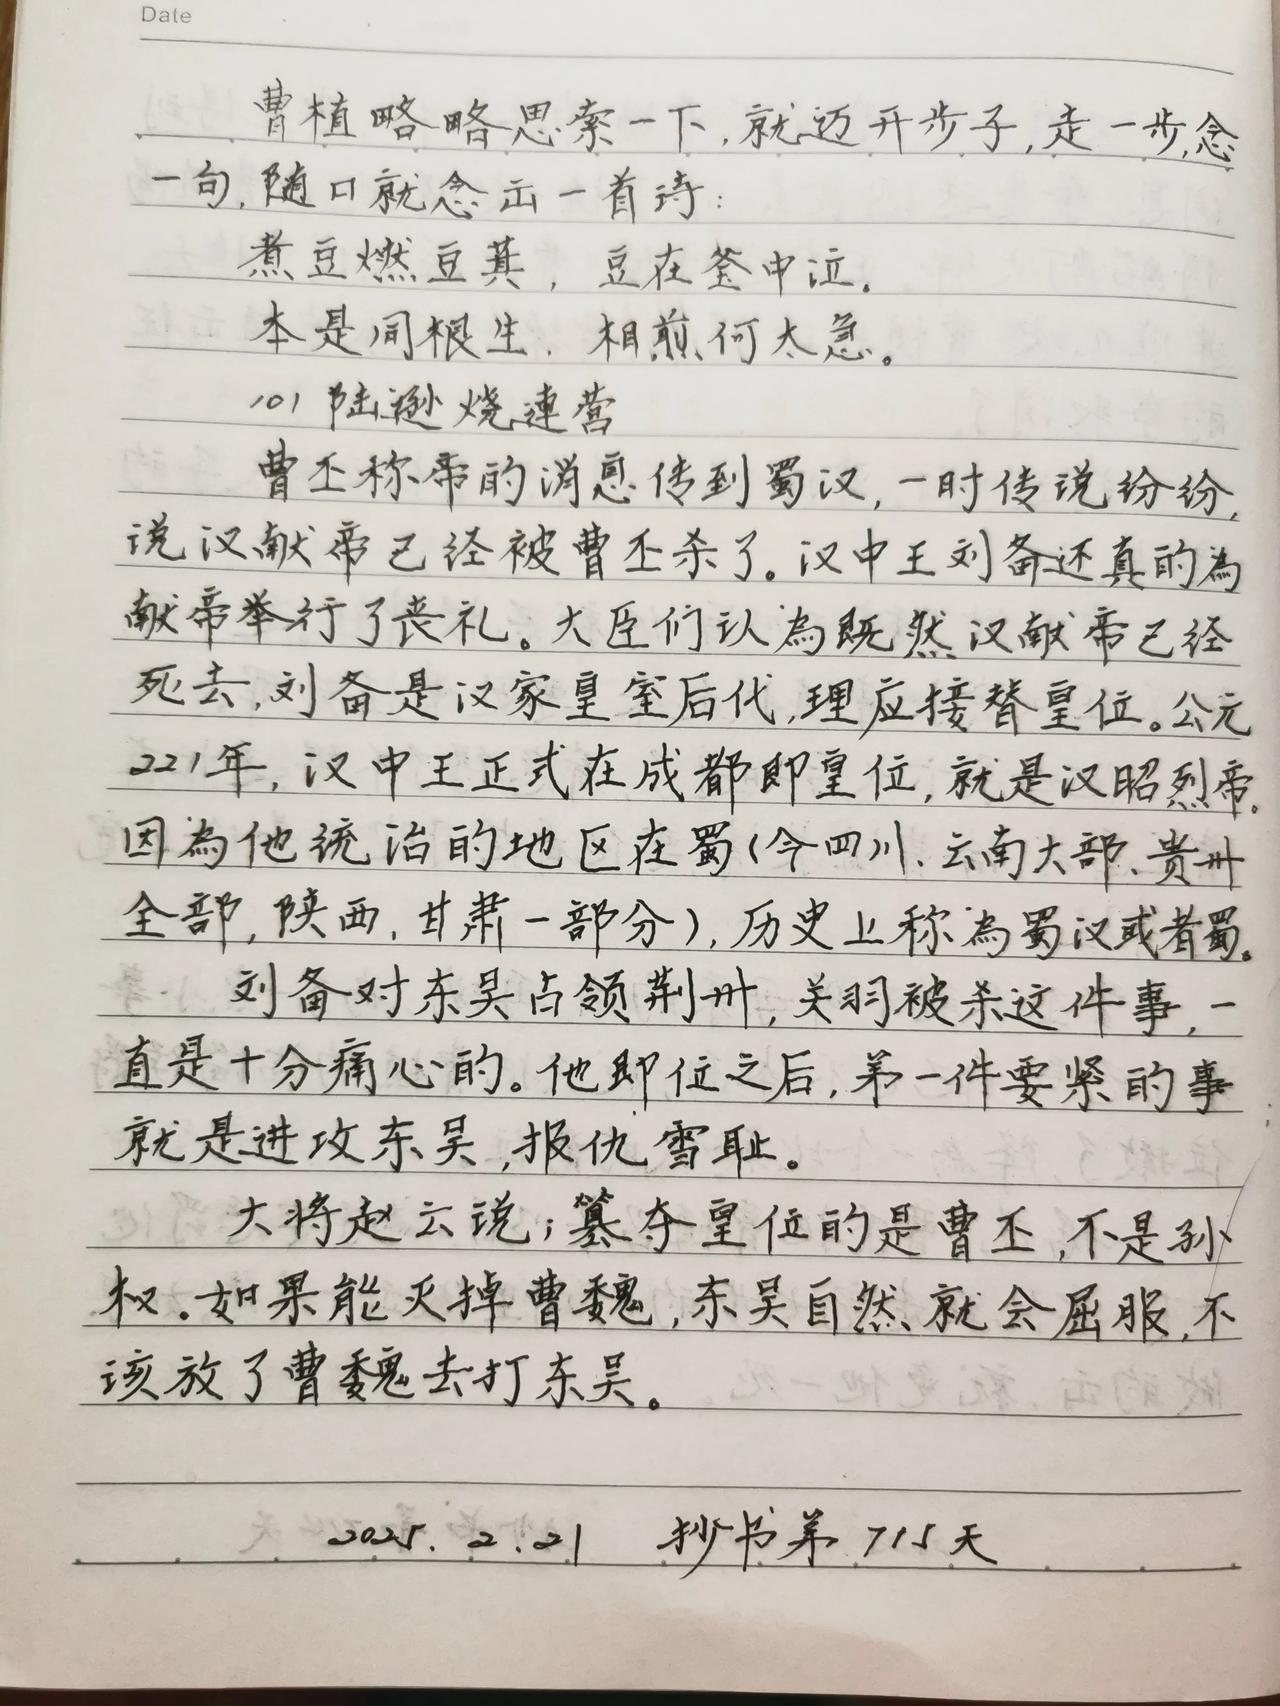 Date
曹植略略思索一下,就迈开步子,走一步,念
一句,随口就念出一首诗:
煮豆燃豆萁,豆在釜中泣。
本是同根生,相煎何太急。
101 陆逊烧連营
曹丕称帝的消息传到蜀汉,一时传说纷纷,
说汉献帝已经被曹丕杀了。汉中王刘备还真的為
献帝举行了丧礼。大臣们认為既然汉献帝已经
死去,刘备是汉家皇室后代,理应接替皇位。公元
221年,汉中王正式在成都即皇位,就是汉昭烈帝。
因為他统治的地区在蜀(今四川、云南大部、贵州
全部,陕西,甘肃一部分),历史上称為蜀汉或者蜀。
刘备对东吴占领荆州,关羽被杀这件事,一
直是十分痛心的。他即位之后,第一件要紧的事
就是进攻东吴,报仇雪耻。
大将赵云说;篡夺皇位的是曹丕,不是孙
权。如果能灭掉曹魏,东吴自然就会屈服,不
该放了曹魏去打东吴。
2025.2.21 抄书第715天